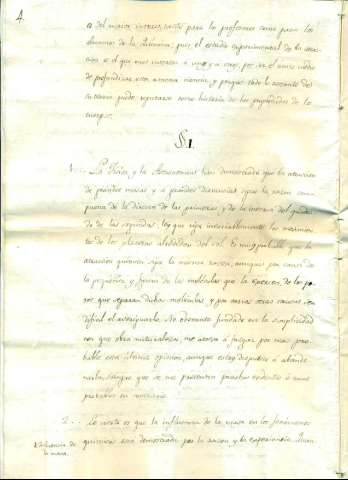 4.
es del mayor interes, tanto para los profesores como para los
alumnos de la Quimica; pues el estudio experimental de la atrac-
cion es el que mas interesa à unos y a otros, por ser el unico modo
de profundizar esta amena ciencia, y porque todo lo restante del
sistema puede reputarse como historia de las propiedades de los
cuerpos.
§ 1.
1... La Fisica, y la Astronomia han demostrado que la atraccion
de grandes masas y a grandes distancias sigue la razon com-
puesta de la directa de las primeras y de la inversa del quadra-
do de las segundas: ley que rije invariablemente los movimien-
tos de los planetas alrededor del sol. Es muy probable que la
atraccion quimica siga la misma razon, aunque por causa de
la pequeñez, y forma de las moleculas, de los po-
ros que separan dichas moleculas, y por varias otras causas, sea
dificil el averiguarlo. No obstante fundado en la simplicidad
con que obra naturaleza, me atrevo à juzgar por mas pro-
bable esta ultima opinion, aunque estoy dispuesto à abando-
narla siempre que se me presenten pruebas evidentes ó mas
probables en contrario.
2... Lo cierto es que la influencia de la masa en los fenómenos
quimicos está demostrada por la razon y la experiencia.
Influencia de
la masa.